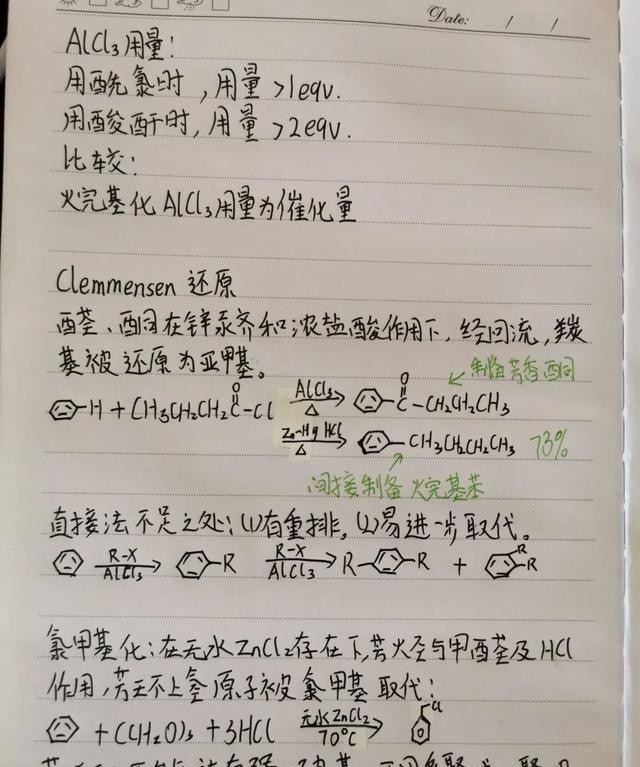 Date: / /
AlCl₃用量:
用酰氯时,用量>1eqv.
用酸酐时,用量>2eqv.
比较:
烷基化AlCl₃用量为催化量
Clemmensen 还原
醛、酮在锌汞齐和浓盐酸作用下,经回流,羰
基被还原为亚甲基。
制备芳香酮
-H + CH₃CH₂CH₂C-Cl AlCl₃ △ O C-CH₂CH₂CH₃
Zn-Hg HCl △ CH₃CH₂CH₂CH₃ 73%
间接制备烷基苯
直接法不足之处:(1)有重排,(2)易进一步取代。
R-X AlCl₃ -R R-X AlCl₃ R- -R + R R
氯甲基化:在无水ZnCl₂存在下,芳烃与甲醛及HCl
作用,芳环上氢原子被氯甲基取代:
+ (CH₂O)₃ + 3HCl 无水ZnCl₂ 70°C Cl